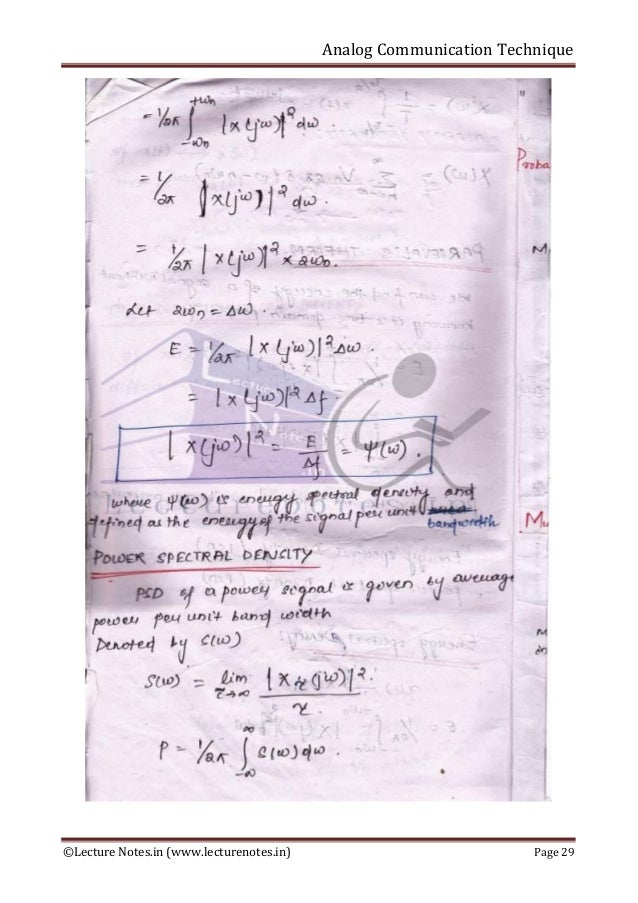 Analog Communication Technique
= 1/2π ∫_{-ωn}^{+ωn} |x(jω)|² dω.
= 1/2π ∫|x(jω)|² dω.
= 1/2π |x(jω)|² × 2ωn.
Let 2ωn = Δω.
E = 1/2π |x(jω)|² Δω.
= |x(jω)|² Δf.
|x(jω)|² = E/Δf = Ψ(ω).
where Ψ(ω) is energy spectral density and
defined as the energy of the signal per unit bandwidth
POWER SPECTRAL DENSITY
PSD of a power signal is given by average
power per unit band width
Denoted by S(ω)
S(ω) = lim_{τ→∞} |Xτ(jω)|² / τ.
P = 1/2π ∫_{-∞}^{∞} S(ω)dω.
Proba
M
Mu
M
in
©Lecture Notes.in (www.lecturenotes.in) Page 29